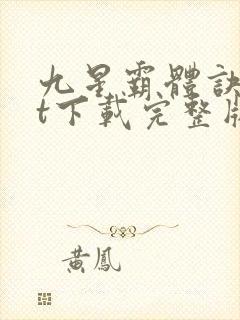 九星霸體訣
t下載完整版
黃鳳